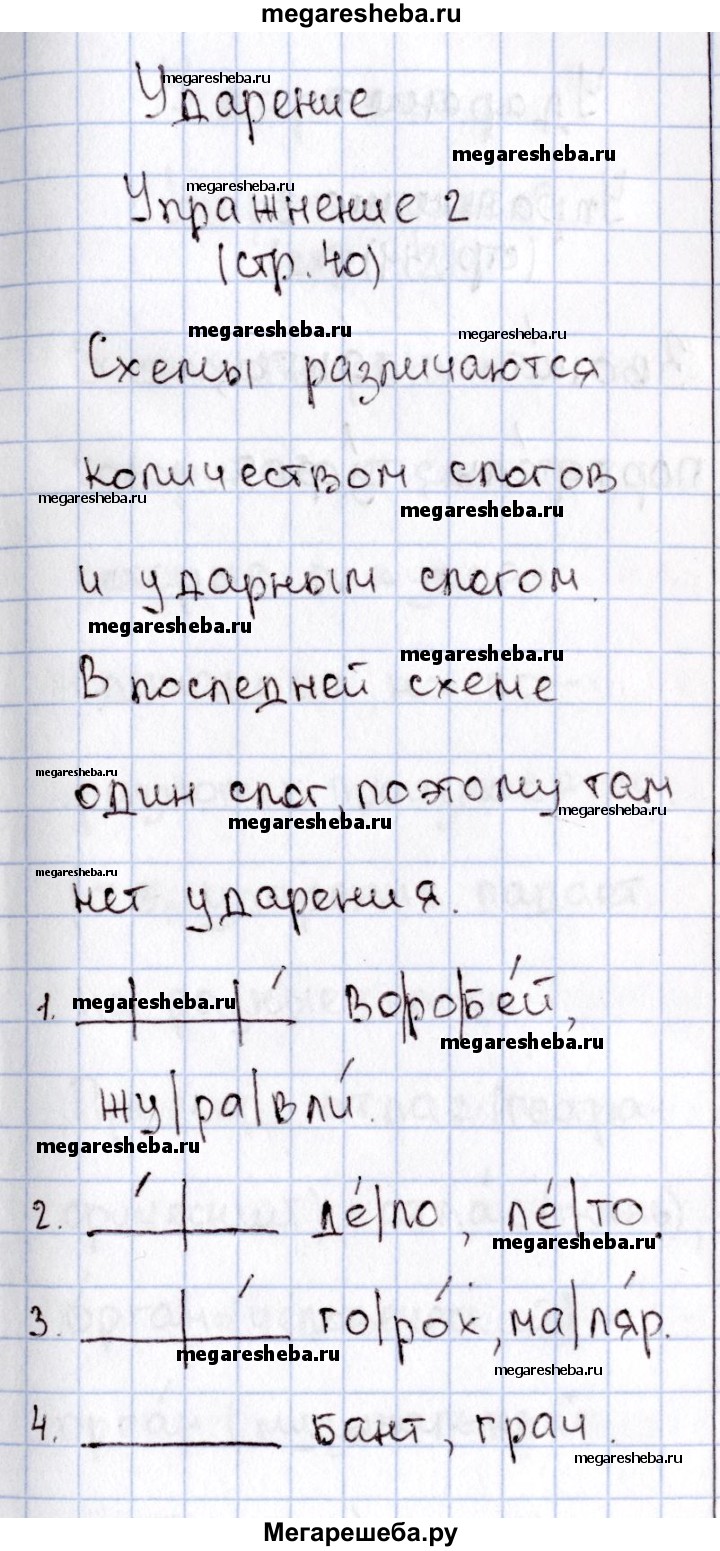 megaresheba.ru
megaresheba.ru
Ударение
megaresheba.ru
megaresheba.ru
Упражнение 2
(стр. 40)
megaresheba.ru megaresheba.ru
Схемы различаются
количеством слогов
megaresheba.ru megaresheba.ru
и ударным слогом.
megaresheba.ru
megaresheba.ru
В последней схеме
megaresheba.ru
один слог, поэтому там
megaresheba.ru megaresheba.ru
megaresheba.ru
нет ударения.
1. megaresheba.ru во|ро|бе́й,
megaresheba.ru
жу|ра|вли́.
megaresheba.ru
2. де́|ло, ле́|то.
megaresheba.ru
3. го|ро́х, ма|ля́р.
megaresheba.ru megaresheba.ru
4. бант, грач.
megaresheba.ru
Мегарешеба.ру